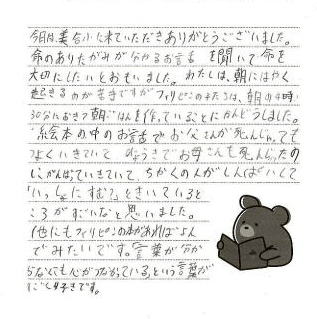 今日は、美合小に来ていただきありがとうございました。
命のありたがみが分かるお言舌を聞いて命を
大切にしたいとおもいました。わたしは、朝にはやく
起きるのがにがてですがフィリピンの子たちは、朝の4時
30分におきて朝ごはんを作っていることにかんどうしました。
絵本の中のお言舌でお父さんが死んじゃっても
つよくいきていて びょうきでお母さんも死んじゃったの
にがんばっていきていて、ちかくの人がしんぱいして
「いっしょにすむ?」ときいているとこ
ころがすごいなと思いました。
他にもフィリピンの本があればよん
でみたいです。「言葉が分か
らなくても心がつながっている」という言葉が
すごく好きです。